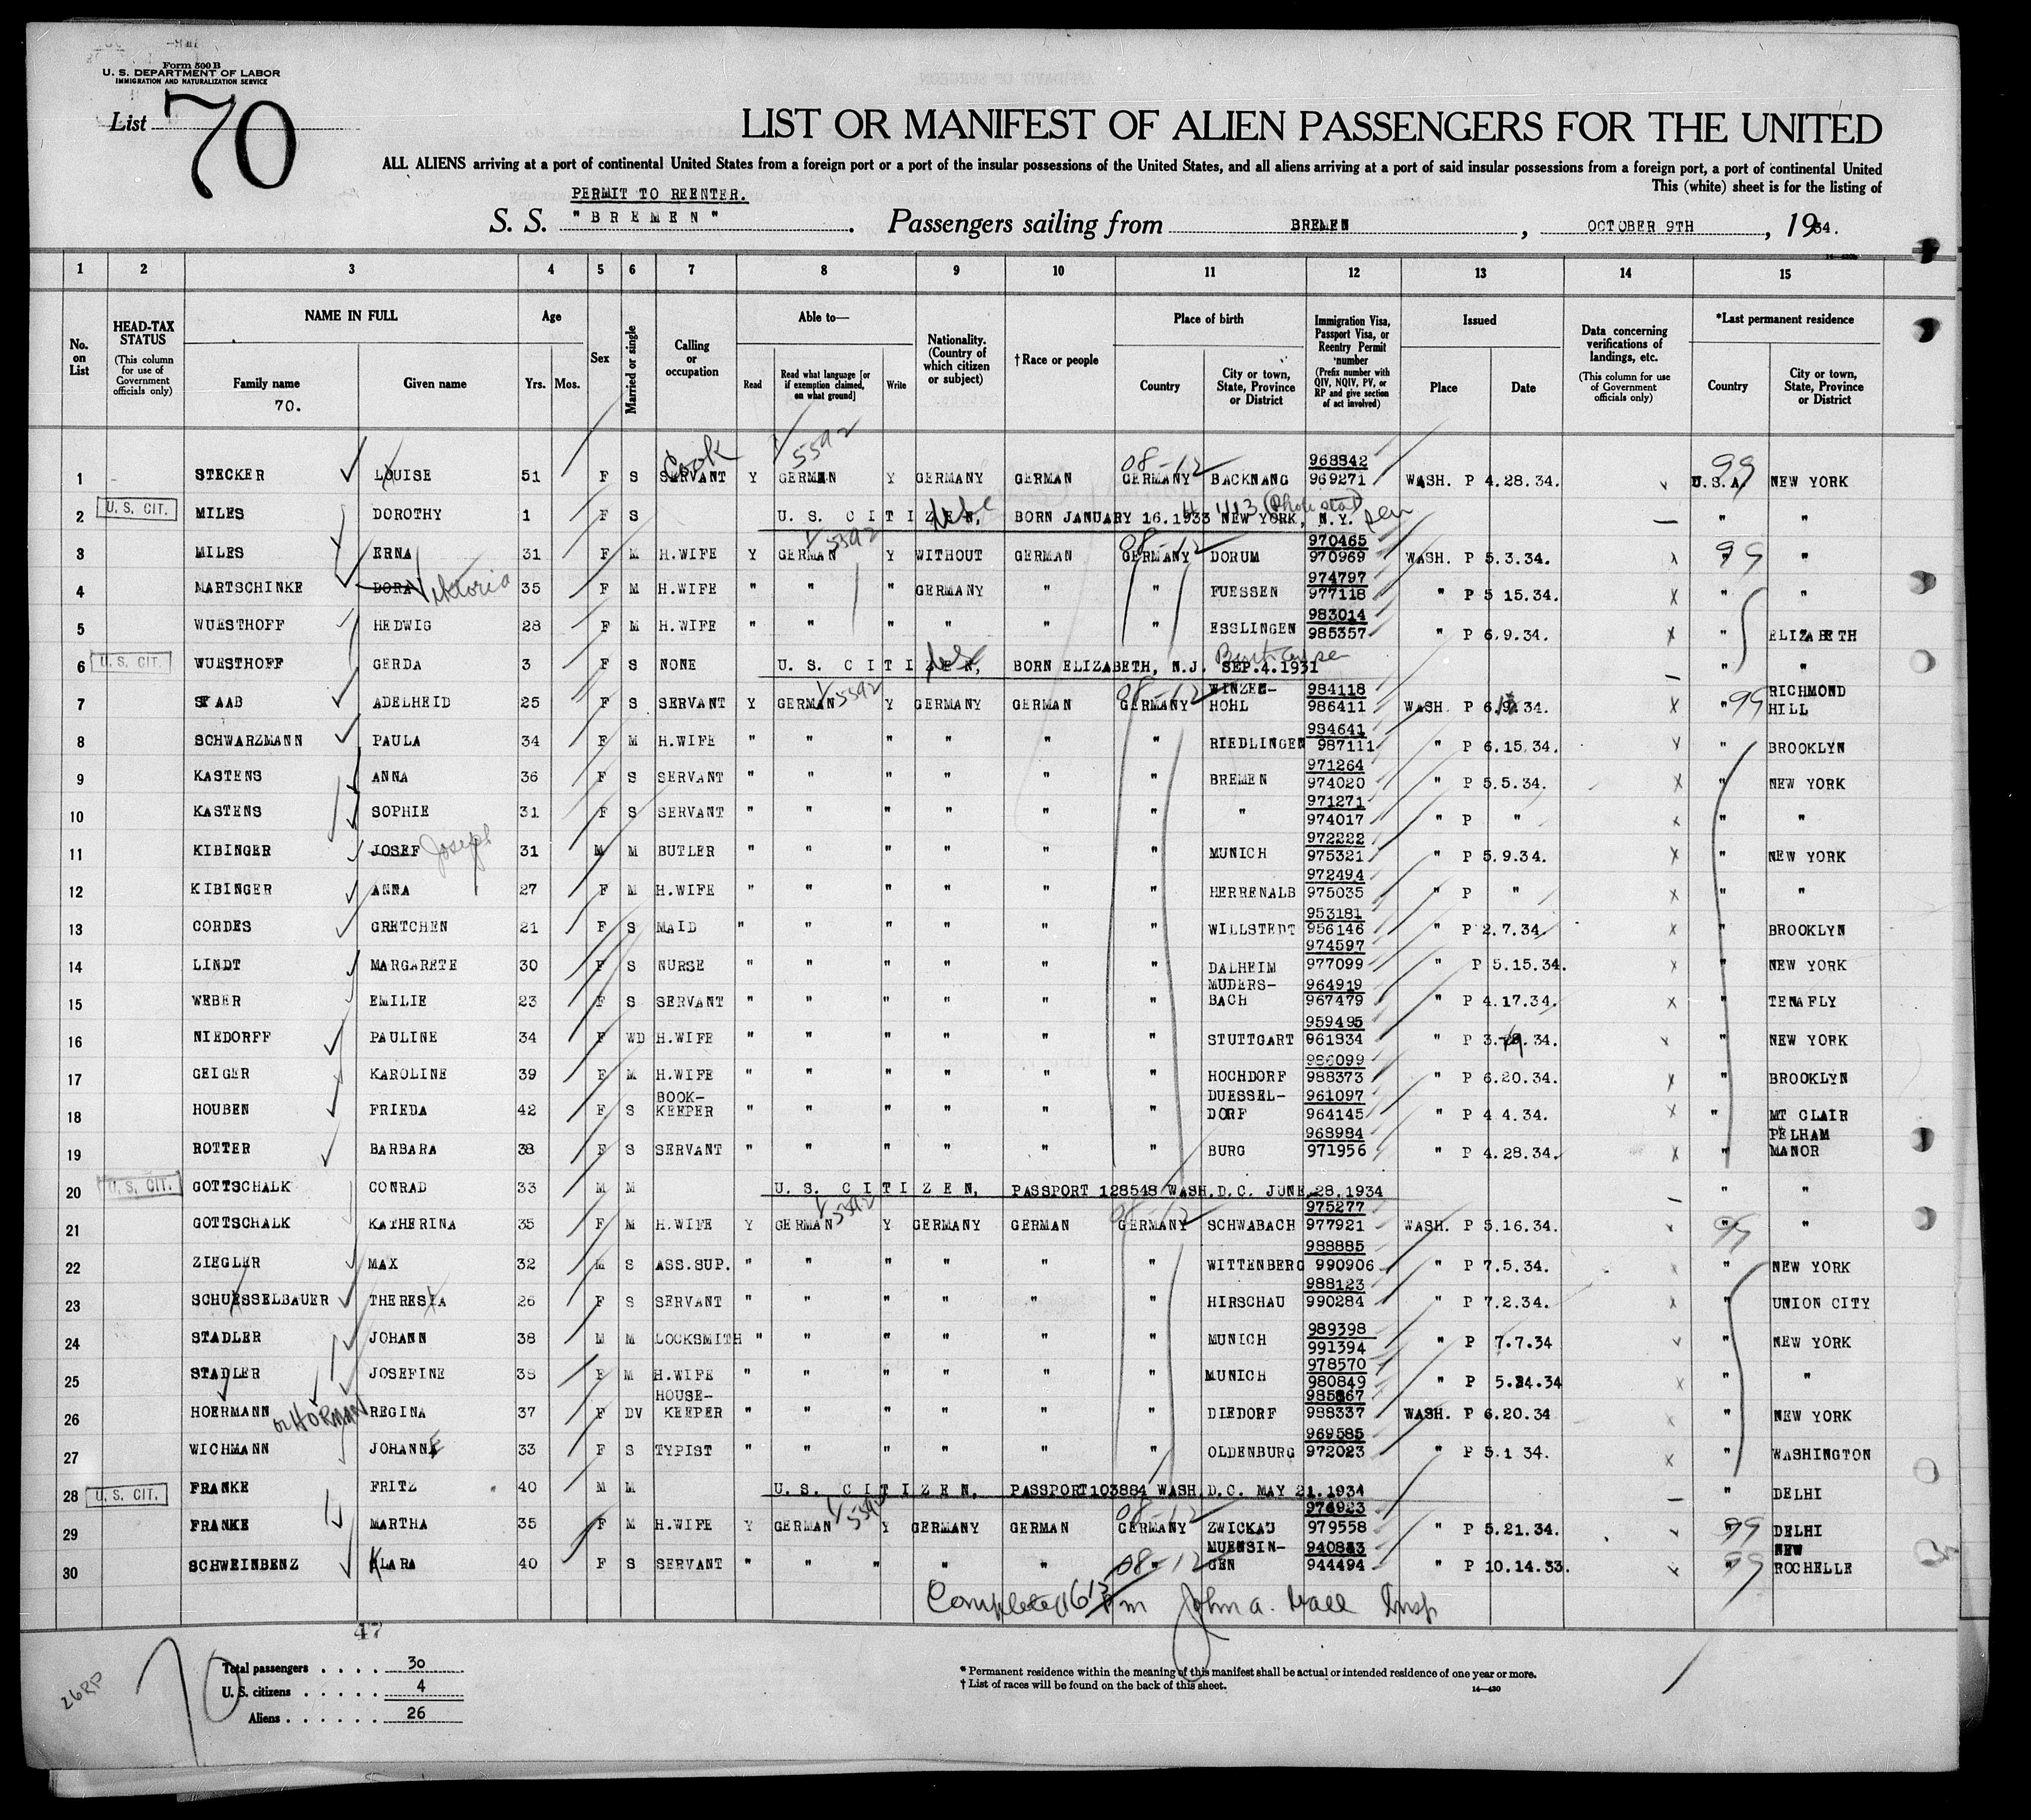 Form 500 B
U. S. DEPARTMENT OF LABOR
IMMIGRATION AND NATURALIZATION SERVICE
List 70
LIST OR MANIFEST OF ALIEN PASSENGERS FOR THE UNITED
ALL ALIENS arriving at a port of continental United States from a foreign port or a port of the insular possessions of the United States, and all aliens arriving at a port of said insular possessions from a foreign port, a port of continental United
This (white) sheet is for the listing of
PERMIT TO REENTER.
S. S. "BREMEN". Passengers sailing from BREMEN, OCTOBER 9TH, 1934.
1 2 3 4 5 6 7 8 9 10 11 12 13 14 15
No. on List
HEAD-TAX STATUS (This column for use of Government officials only)
NAME IN FULL Family name Given name
70.
Age Yrs. Mos.
Sex
Married or single
Calling or occupation
Able to— Read Read what language [or if exemption claimed, on what ground] Write
Nationality. (Country of which citizen or subject)
† Race or people
Place of birth Country City or town, State, Province or District
Immigration Visa, Passport Visa, or Reentry Permit number (Prefix number with QIV, NQIV, PV, or RP and give section of act involved)
Issued Place Date
Data concerning verifications of landings, etc. (This column for use of Government officials only)
*Last permanent residence Country City or town, State, Province or District
Cook 5592 08-12 968842 99
1 STECKER LOUISE 51 F S SERVANT Y GERMAN Y GERMANY GERMAN GERMANY BACKNANG 969271 WASH. P 4.28.34. U.S.A. NEW YORK
2 U. S. CIT. MILES DOROTHY 1 F S U. S. CITIZEN, BORN JANUARY 16.1933 NEW YORK, N.Y. " "
5592 08-12 970465 99
3 MILES ERNA 31 F M H.WIFE Y GERMAN Y WITHOUT GERMAN GERMANY DORUM 970969 WASH. P 5.3.34. " "
974797
4 MARTSCHINKE DORA Viktoria 35 F M H.WIFE " " " GERMANY " " FUESSEN 977118 " P 5 15.34. " "
983014
5 WUESTHOFF HEDWIG 28 F M H.WIFE " " " " " " ESSLINGEN 985357 " P 6.9.34. " ELIZABETH
6 U. S. CIT. WUESTHOFF GERDA 3 F S NONE U. S. CITIZEN, BORN ELIZABETH, N.J. SEP.4.1931 " "
5592 08-12 WINZEE- 984118 99 RICHMOND
7 SPAAB ADELHEID 25 F S SERVANT Y GERMAN Y GERMANY GERMAN GERMANY HOHL 986411 WASH. P 6.9.34. " HILL
984641
8 SCHWARZMANN PAULA 34 F M H.WIFE " " " " " " RIEDLINGEN 987111 " P 6.15.34. " BROOKLYN
971264
9 KASTENS ANNA 36 F S SERVANT " " " " " " BREMEN 974020 " P 5.5.34. " NEW YORK
971271
10 KASTENS SOPHIE 31 F S SERVANT " " " " " " " 974017 " P " " "
972222
11 KIBINGER JOSEF Joseph 31 M M BUTLER " " " " " " MUNICH 975321 " P 5.9.34. " NEW YORK
972494
12 KIBINGER ANNA 27 F M H.WIFE " " " " " " HERRENALB 975035 " P " " "
953181
13 CORDES GRETCHEN 21 F S MAID " " " " " " WILLSTEDT 956146 " P 2.7.34. " BROOKLYN
974597
14 LINDT MARGARETE 30 F S NURSE " " " " " " DALHEIM 977099 " P 5.15.34. " NEW YORK
MUDERS- 964919
15 WEBER EMILIE 23 F S SERVANT " " " " " " BACH 967479 " P 4.17.34. " TENAFLY
959495
16 NIEDORFF PAULINE 34 F WD H.WIFE " " " " " " STUTTGART 961834 " P 3.19.34. " NEW YORK
986099
17 GEIGER KAROLINE 39 F M H.WIFE " " " " " " HOCHDORF 988373 " P 6.20.34. " BROOKLYN
BOOK- DUESSEL- 961097
18 HOUBEN FRIEDA 42 F S KEEPER " " " " " " DORF 964145 " P 4 4.34. " MT CLAIR
968984 PELHAM
19 ROTTER BARBARA 38 F S SERVANT " " " " " " BURG 971956 " P 4.28.34. " MANOR
20 U. S. CIT. GOTTSCHALK CONRAD 33 M M U. S. CITIZEN, PASSPORT 128548 WASH.D.C. JUNE 28,1934 " "
5592 08-12 975277 99
21 GOTTSCHALK KATHERINA 35 F M H.WIFE Y GERMAN Y GERMANY GERMAN GERMANY SCHWABACH 977921 WASH. P 5.16.34. " "
988885
22 ZIEGLER MAX 32 M S ASS.SUP. " " " " " " WITTENBERG 990906 " P 7.5.34. " NEW YORK
988123
23 SCHUESSELBAUER THERESIA 26 F S SERVANT " " " " " " HIRSCHAU 990284 " P 7.2.34. " UNION CITY
989398
24 STADLER JOHANN 38 M M LOCKSMITH " " " " " " MUNICH 991394 " P 7.7.34 " NEW YORK
978570
25 STADLER JOSEFINE 38 F M H.WIFE " " " " " " MUNICH 980849 " P 5.24.34 " "
HOUSE- 985867
26 HOERMANN or HORMAN REGINA 37 F DV KEEPER " " " " " " DIEDORF 988337 WASH. P 6.20.34 " NEW YORK
969585
27 WICHMANN JOHANNE 33 F S TYPIST " " " " " " OLDENBURG 972023 " P 5.1 34. " WASHINGTON
28 U. S. CIT. FRANKE FRITZ 40 M M U. S. CITIZEN, PASSPORT103884 WASH.D.C. MAY 21.1934 " DELHI
5592 08-12 976923 99
29 FRANKE MARTHA 35 F M H.WIFE Y GERMAN Y GERMANY GERMAN GERMANY ZWICKAU 979558 " P 5.21.34. " DELHI
08-12 MUENSIN- 940883 99 NEW
30 SCHWEINBENZ KLARA 40 F S SERVANT " " " " " " GEN 944494 " P 10.14.33. " ROCHELLE
Completed 6 13 Pm John A. Hall Insp
47
70
26RP
Total passengers . . . . 30
U. S. citizens . . . . . 4
Aliens . . . . . . 26
* Permanent residence within the meaning of this manifest shall be actual or intended residence of one year or more.
† List of races will be found on the back of this sheet.
14—430